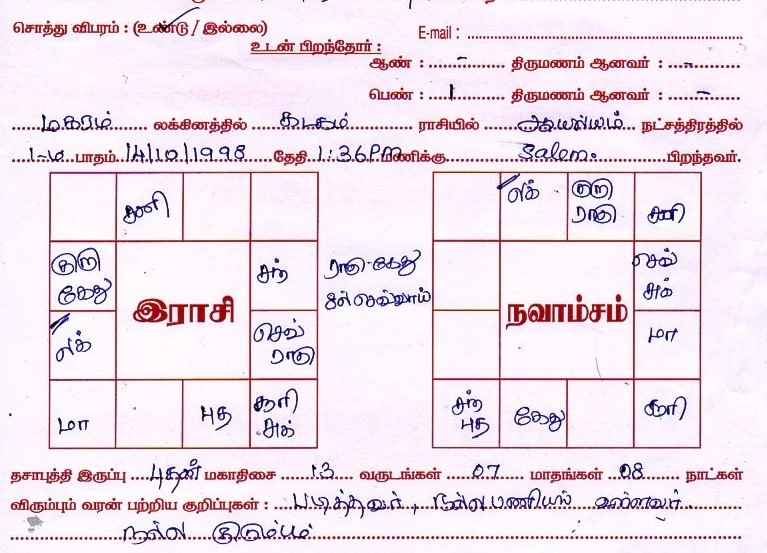 சொத்து விபரம் : (உண்டு / இல்லை)
E-mail :
உடன் பிறந்தோர் :
ஆண் : - திருமணம் ஆனவர் : -
பெண் : 1 திருமணம் ஆனவர் : -
மகரம் லக்கினத்தில் கடகம் ராசியில் ஆயில்யம் நட்சத்திரத்தில்
1-ம் பாதம் 14/10/1998 தேதி 1:36PM மணிக்கு Salem. பிறந்தவர்.
சனி
குரு கேது
சந்
இராசி
லக்
செவ் ராகு
மா
புத
சூரி சுக்
ராகு-கேது
8ல் செவ்வாய்
லக்
குரு ராகு
சனி
செவ் சுக்
நவாம்சம்
மா
சந் புத
கேது
சூரி
தசாபுத்தி இருப்பு புதன் மகாதிசை 13 வருடங்கள் 07 மாதங்கள் 08 நாட்கள்
விரும்பும் வரன் பற்றிய குறிப்புகள் : படித்தவர், நல்ல பணியில் உள்ளவர்.
நல்ல குடும்பம்